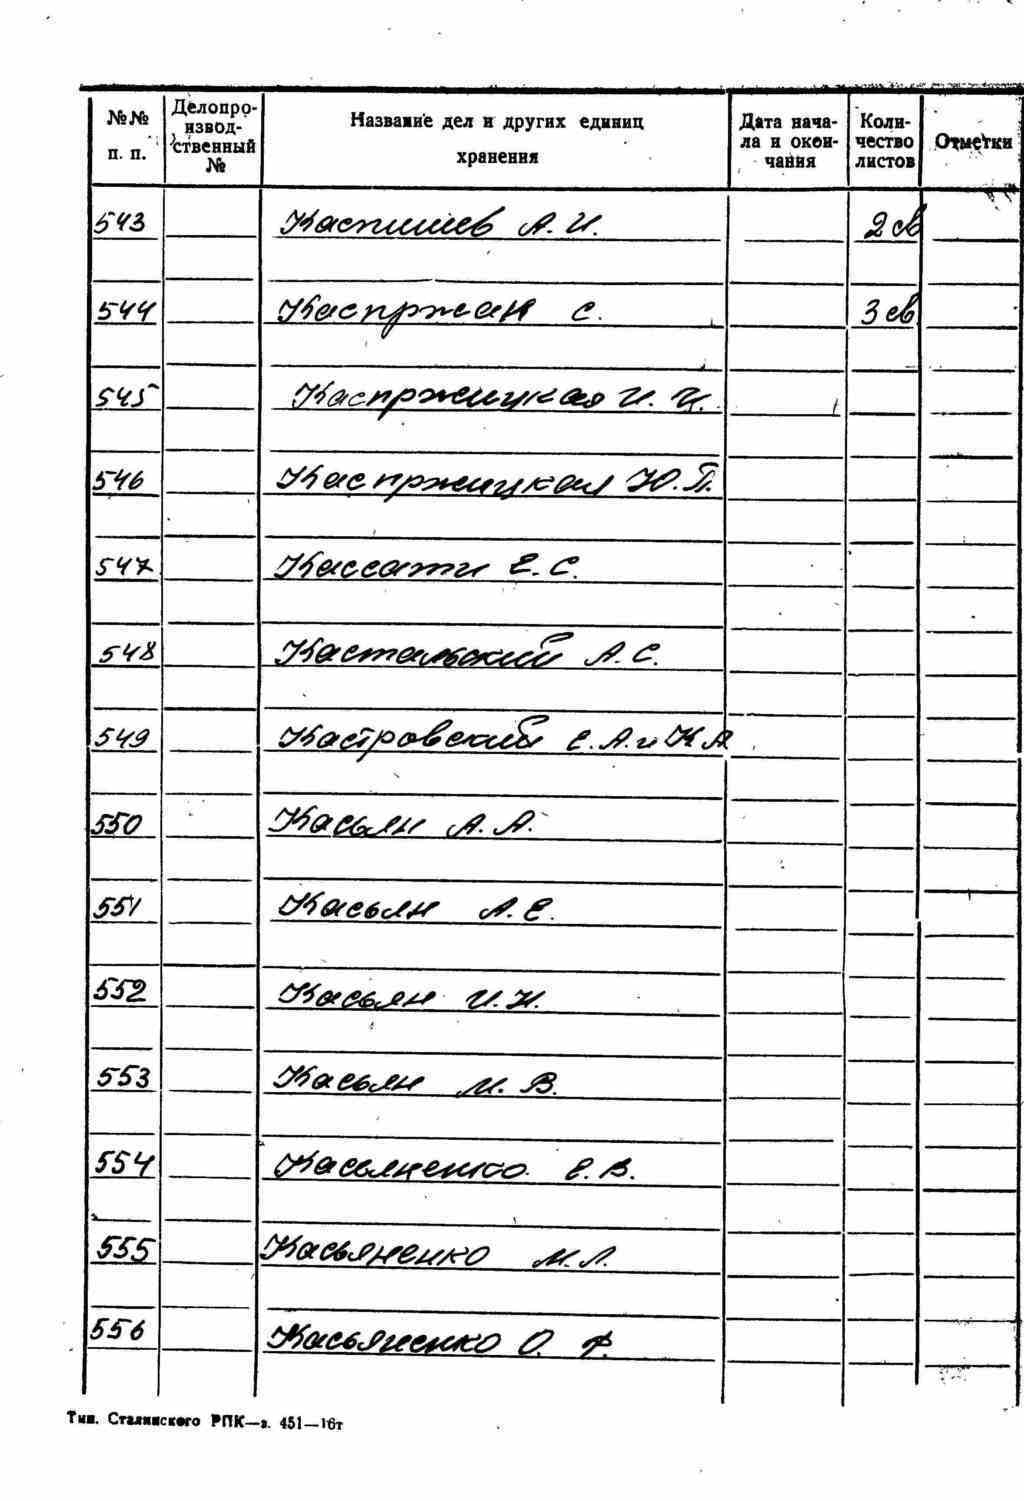 №№ п. п. Делопроизводственный № Название дел и других единиц хранения Дата начала и окончания Количество листов Отметки
543 Каспишев А. И. 2 св
544 Каспржак С. 3 св
545 Каспржицкая И. И.
546 Каспржицкая Ю. П.
547 Кассати Е. С.
548 Кастальский А. С.
549 Кастровский Е. А. и К А
550 Касьян А. А.
551 Касьян А. Е.
552 Касьян И. Н.
553 Касьян М. В.
554 Касьяненко Е. В.
555 Касьяненко М. Л.
556 Касьяненко О. Ф.
Тип. Сталинского РПК—з. 451—16т